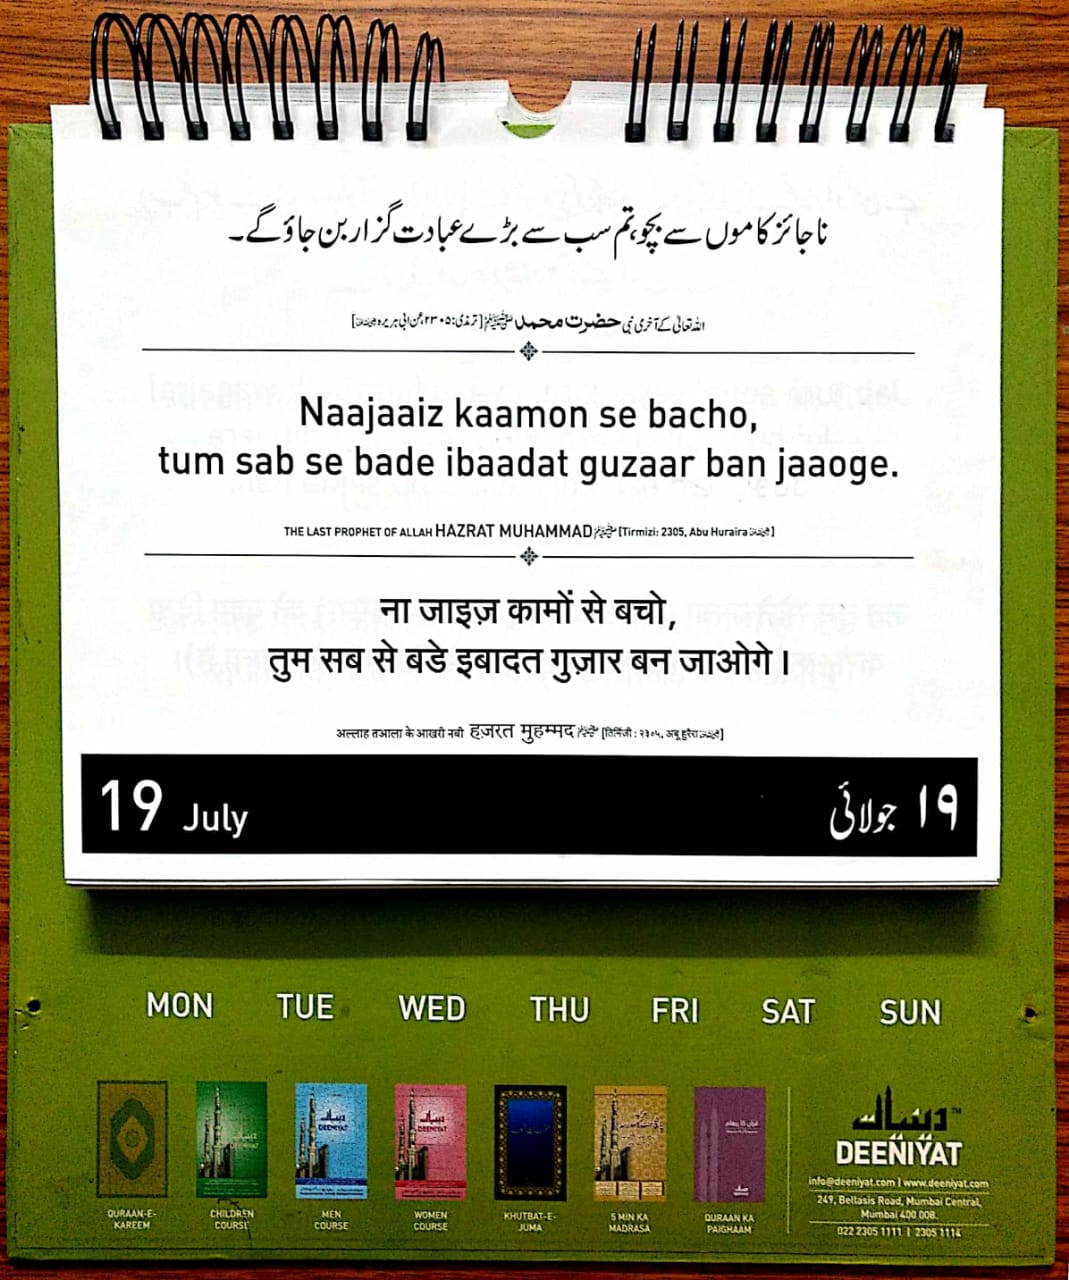 ناجائز کاموں سے بچو، تم سب سے بڑے عبادت گزار بن جاؤ گے۔
اللہ تعالیٰ کے آخری نبی حضرت محمد ﷺ [ترمذی: ۲۳۰۵، عن ابی ہریرہ]
Naajaaiz kaamon se bacho,
tum sab se bade ibaadat guzaar ban jaaoge.
THE LAST PROPHET OF ALLAH HAZRAT MUHAMMAD ﷺ [Tirmizi: 2305, Abu Huraira]
ना जाइज़ कामों से बचो,
तुम सब से बडे इबादत गुज़ार बन जाओगे।
अल्लाह तआला के आखरी नबी हज़रत मुहम्मद ﷺ [तिर्मिज़ी : २३०५, अबू हुरैरा]
19 July
۱۹ جولائی
MON TUE WED THU FRI SAT SUN
QURAAN-E-
KAREEM
CHILDREN
COURSE
MEN
COURSE
WOMEN
COURSE
KHUTBAT-E-
JUMA
5 MIN KA
MADRASA
QURAAN KA
PAIGHAAM
DEENIYAT
info@deeniyat.com | www.deeniyat.com
249, Bellasis Road, Mumbai Central,
Mumbai 400 008.
022 2305 1111 | 2305 1114